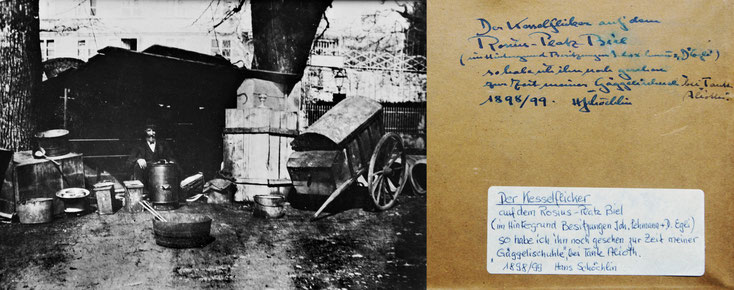 Der Kesselflicker auf dem
Rosius-Platz Biel
(im Hintergrund Besitzungen Joh. Lehmann, D. Egli)
so habe ich ihn noch gesehen
zur Zeit meiner "Gäggelischuhle" bei Tante
Alioth.
1898/99. HSchöchlin
Der Kesselflicker
auf dem Rosius-Platz Biel
(im Hintergrund Besitzungen Joh. Lehmann + D. Egli)
so habe ich ihn noch gesehen zur Zeit meiner
"Gäggelischuhle" bei Tante Alioth.
1898/99 Hans Schöchlin